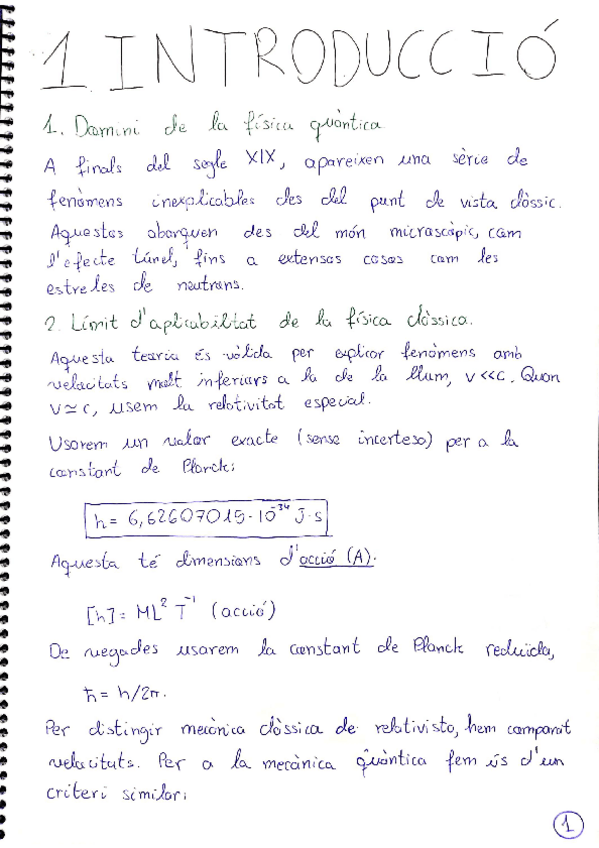 1 INTRODUCCIÓ
1. Domini de la física quàntica
A finals del segle XIX, apareixen una sèrie de
fenòmens inexplicables des del punt de vista clàssic.
Aquestos abarquen des del món microscòpic, com
l'efecte túnel, fins a extensos casos com les
estreles de neutrons.
2. Límit d'aplicabiltat de la física clàssica.
Aquesta teoria és vàlida per explicar fenòmens amb
velocitats molt inferiors a la de la llum, v<<c. Quan
v≃c, usem la relativitat especial.
Usarem un valor exacte (sense incertesa) per a la
constant de Planck:
h = 6,62607015·10⁻³⁴ J·s
Aquesta té dimensions d'acció (A).
[h] = ML² T⁻¹ (acció)
De vegades usarem la constant de Planck reduïda,
ħ = h/2π.
Per distingir mecànica clàssica de relativista, hem comparat
velocitats. Per a la mecànica quàntica fem ús d'un
criteri similar:
1